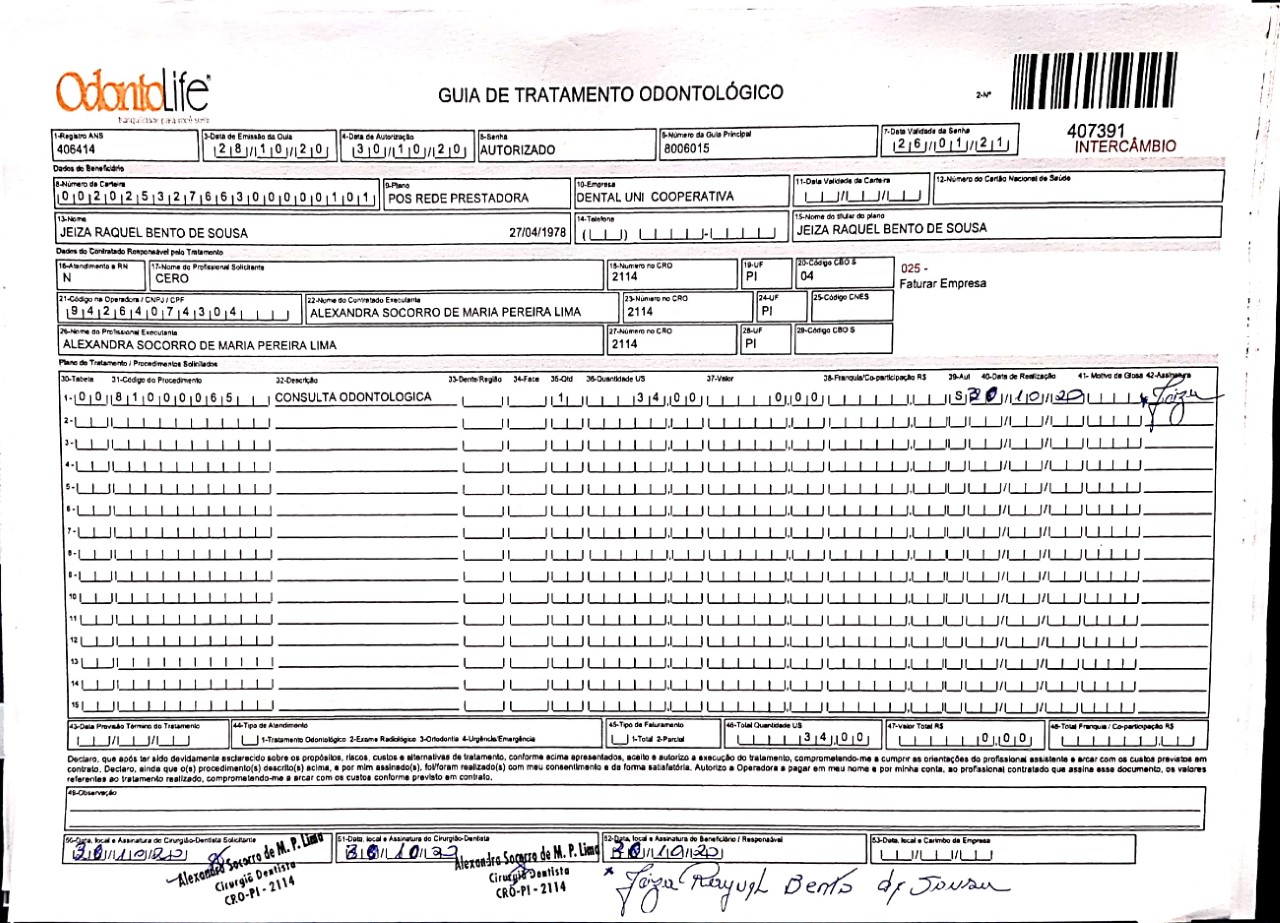 OdontoLife
tranquilidade para você sorrir
GUIA DE TRATAMENTO ODONTOLÓGICO
2-Nº
407391
INTERCÂMBIO
1-Registro ANS
406414
3-Data de Emissão da Guia
28/10/20
4-Data de Autorização
30/10/20
5-Senha
AUTORIZADO
6-Número da Guia Principal
8006015
7-Data Validade da Senha
26/01/21
Dados do Beneficiário
8-Número da Carteira
00202532766300000101
9-Plano
POS REDE PRESTADORA
10-Empresa
DENTAL UNI COOPERATIVA
11-Data Validade da Carteira
12-Número do Cartão Nacional de Saúde
13-Nome
JEIZA RAQUEL BENTO DE SOUSA 27/04/1978
14-Telefone
15-Nome do titular do plano
JEIZA RAQUEL BENTO DE SOUSA
Dados do Contratado Responsável pelo Tratamento
16-Atendimento a RN
N
17-Nome do Profissional Solicitante
CERO
18-Número no CRO
2114
19-UF
PI
20-Código CBO S
04
025 -
Faturar Empresa
21-Código na Operadora / CNPJ / CPF
94264074304
22-Nome do Contratado Executante
ALEXANDRA SOCORRO DE MARIA PEREIRA LIMA
23-Número no CRO
2114
24-UF
PI
25-Código CNES
26-Nome do Profissional Executante
ALEXANDRA SOCORRO DE MARIA PEREIRA LIMA
27-Número no CRO
2114
28-UF
PI
29-Código CBO S
Plano de Tratamento / Procedimentos Solicitados
30-Tabela 31-Código do Procedimento 32-Descrição 33-Dente/Região 34-Face 35-Qtd 36-Quantidade US 37-Valor 38-Franquia/Co-participação R$ 39-Aut 40-Data de Realização 41- Motivo da Glosa 42-Assinatura
1- 00 81000065 CONSULTA ODONTOLOGICA 1 34,00 0,00 S 30/10/20 Jeiza
2-
3-
4-
5-
6-
7-
8-
9-
10
11
12
13
14
15
43-Data Provisão Término do Tratamento
44-Tipo de Atendimento
1-Tratamento Odontológico 2-Exame Radiológico 3-Ortodontia 4-Urgência/Emergência
45-Tipo de Faturamento
1-Total 2-Parcial
46-Total Quantidade US
34,00
47-Valor Total R$
0,00
48-Total Franquia / Co-participação R$
Declaro, que após ter sido devidamente esclarecido sobre os propósitos, riscos, custos e alternativas de tratamento, conforme acima apresentados, aceito e autorizo a execução do tratamento, comprometendo-me a cumprir as orientações do profissional assistente e arcar com os custos previstos em
contrato. Declaro, ainda que o(s) procedimento(s) descrito(s) acima, e por mim assinado(s), foi/foram realizado(s) com meu consentimento e de forma satisfatória. Autorizo a Operadora a pagar em meu nome e por minha conta, ao profissional contratado que assina esse documento, os valores
referentes ao tratamento realizado, comprometendo-me a arcar com os custos conforme previsto em contrato.
49-Observação
50-Data, local e Assinatura do Cirurgião-Dentista Solicitante
30/10/20
Alexandra Socorro de M. P. Lima
Cirurgiã Dentista
CRO-PI - 2114
51-Data, local e Assinatura do Cirurgião-Dentista
30/10/20
Alexandra Socorro de M. P. Lima
Cirurgiã Dentista
CRO-PI - 2114
52-Data, local e Assinatura do Beneficiário / Responsável
30/10/20
Jeiza Raquel Bento de Sousa
53-Data, local e Carimbo da Empresa